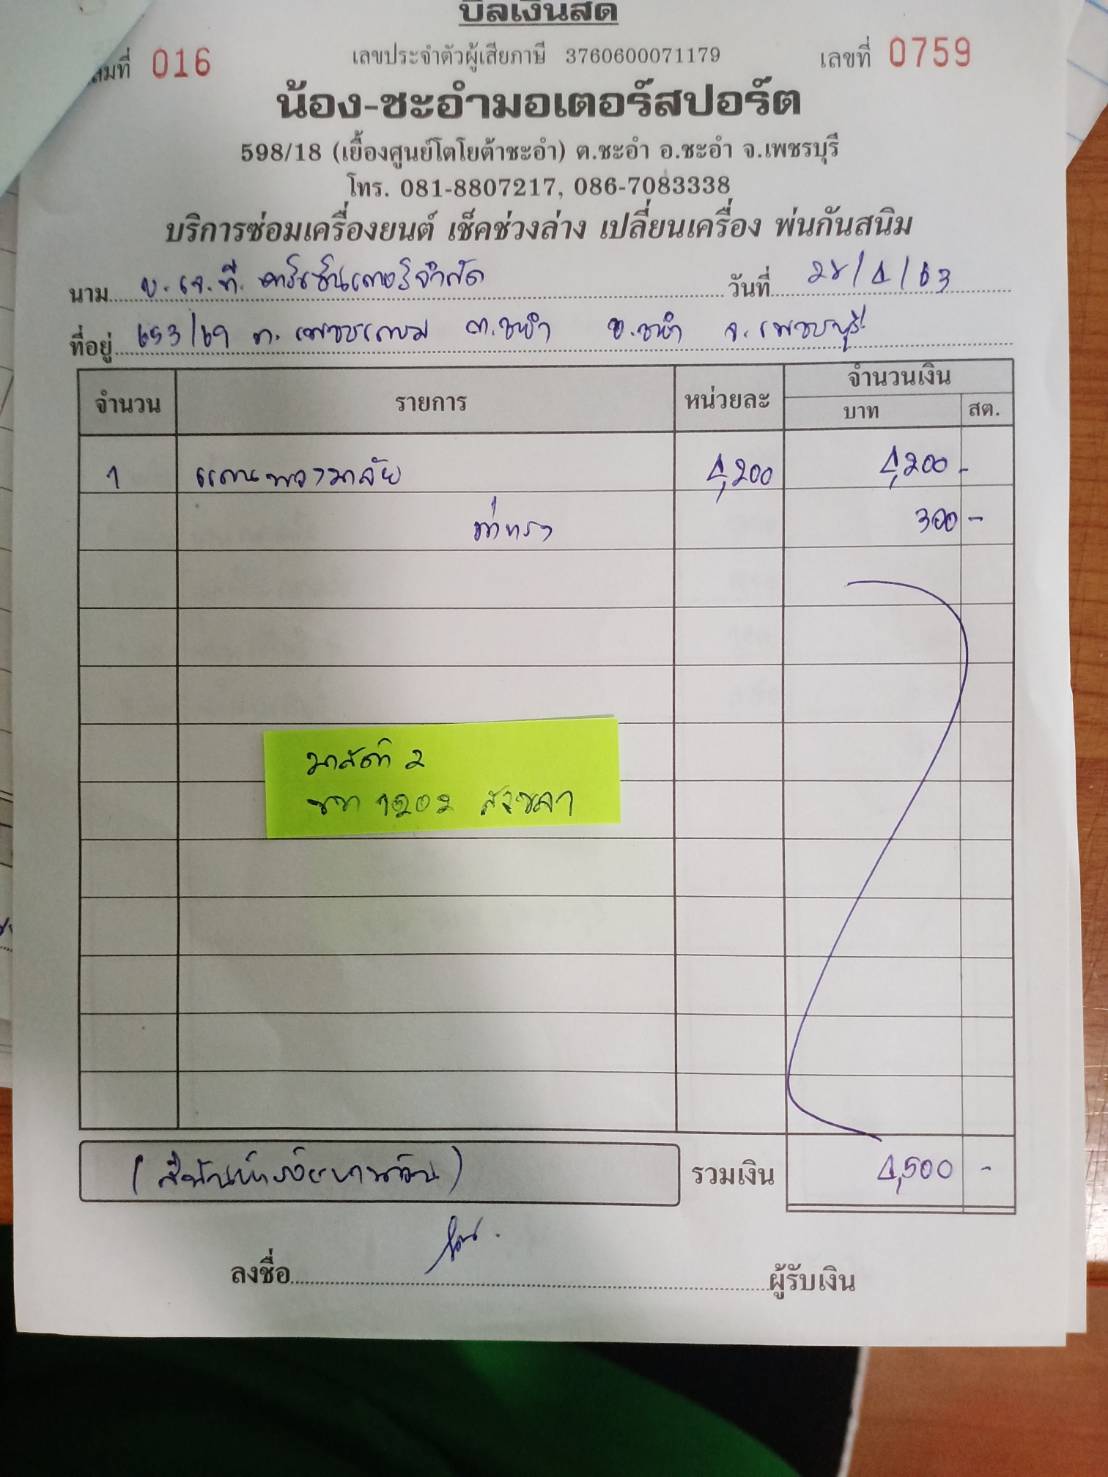 บิลเงินสด
เล่มที่ 016 เลขประจำตัวผู้เสียภาษี 3760600071179 เลขที่ 0759
น้อง-ชะอำมอเตอร์สปอร์ต
598/18 (เยื้องศูนย์โตโยต้าชะอำ) ต.ชะอำ อ.ชะอำ จ.เพชรบุรี
โทร. 081-8807217, 086-7083338
บริการซ่อมเครื่องยนต์ เช็คช่วงล่าง เปลี่ยนเครื่อง พ่นกันสนิม
นาม บ. เจ. ที. คาร์เซ็นเตอร์จำกัด วันที่ 28/4/63
ที่อยู่ 653/69 ถ. เพชรเกษม ต. ชะอำ อ. ชะอำ จ. เพชรบุรี
จำนวน รายการ หน่วยละ จำนวนเงิน
บาท สต.
1 แกนพวงมาลัย 4,200 4,200 -
ค่าแรง 300 -
มาสด้า 2
1202 สงขลา
(สี่พันห้าร้อยบาทถ้วน) รวมเงิน 4,500 -
ลงชื่อ ผู้รับเงิน